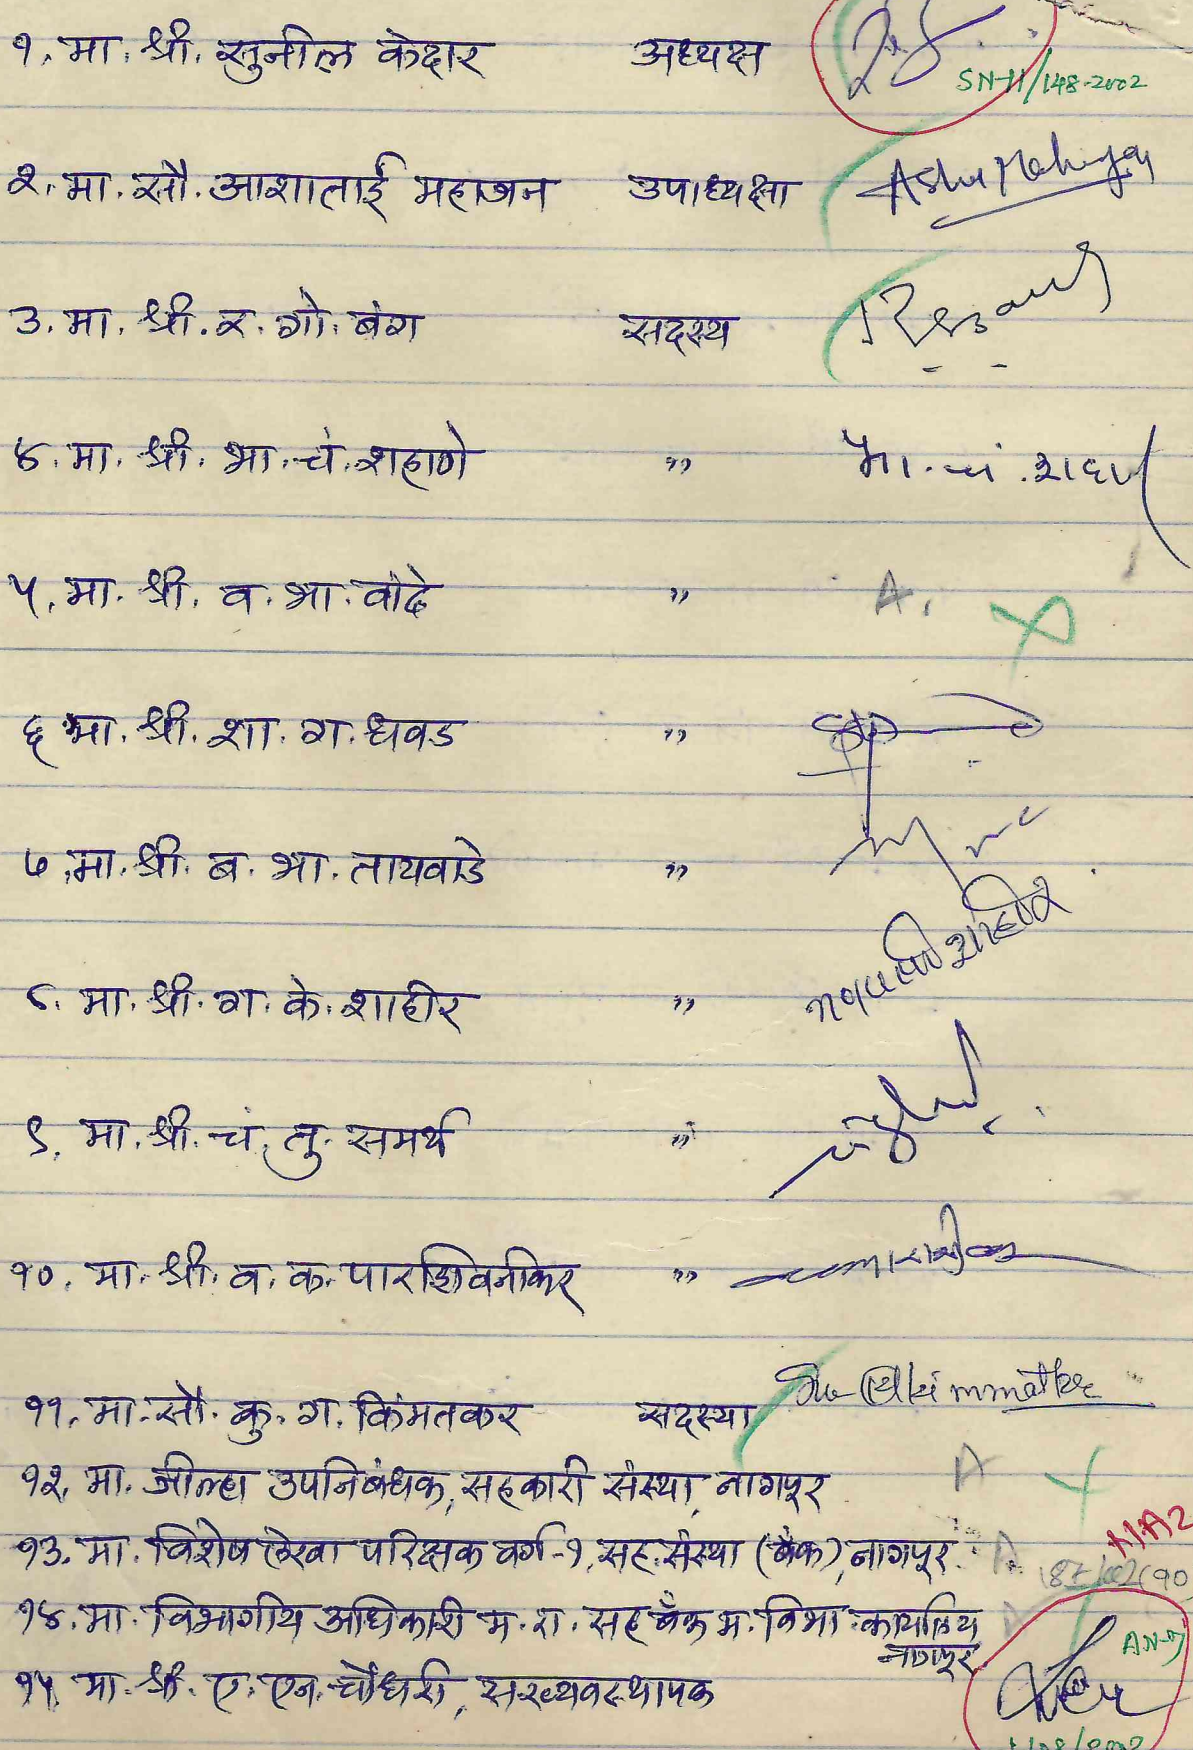 १. मा. श्री. सुनील केदार अध्यक्ष
SN-11/148-2002
२. मा. सौ. आशाताई महाजन उपाध्यक्षा Asha Mahajan
३. मा. श्री. र. गो. बंग सदस्य
४. मा. श्री. भा. चं. शहाणे " भा. चं. शहाणे
५. मा. श्री. व. भा. वांदे " A.
६ मा. श्री. शा. ग. धवड "
७. मा. श्री. ब. भा. तायवाडे "
८. मा. श्री. ग. के. शाहीर "
९. मा. श्री. चं. तु. समर्थ "
१०. मा. श्री. व. क. पारशिवनीकर "
११. मा. सौ. कु. ग. किंमतकर सदस्या
१२. मा. जील्हा उपनिबंधक, सहकारी संस्था, नागपूर A
१३. मा. विशेष लेखा परिक्षक वर्ग-१, सह. संस्था (बँक), नागपूर. A
१४. मा. विभागीय अधिकारी म. रा. सह बँक म. विभा. कार्यालय
नागपूर
१५ मा. श्री. ए. एन. चौधरी, सरव्यवस्थापक